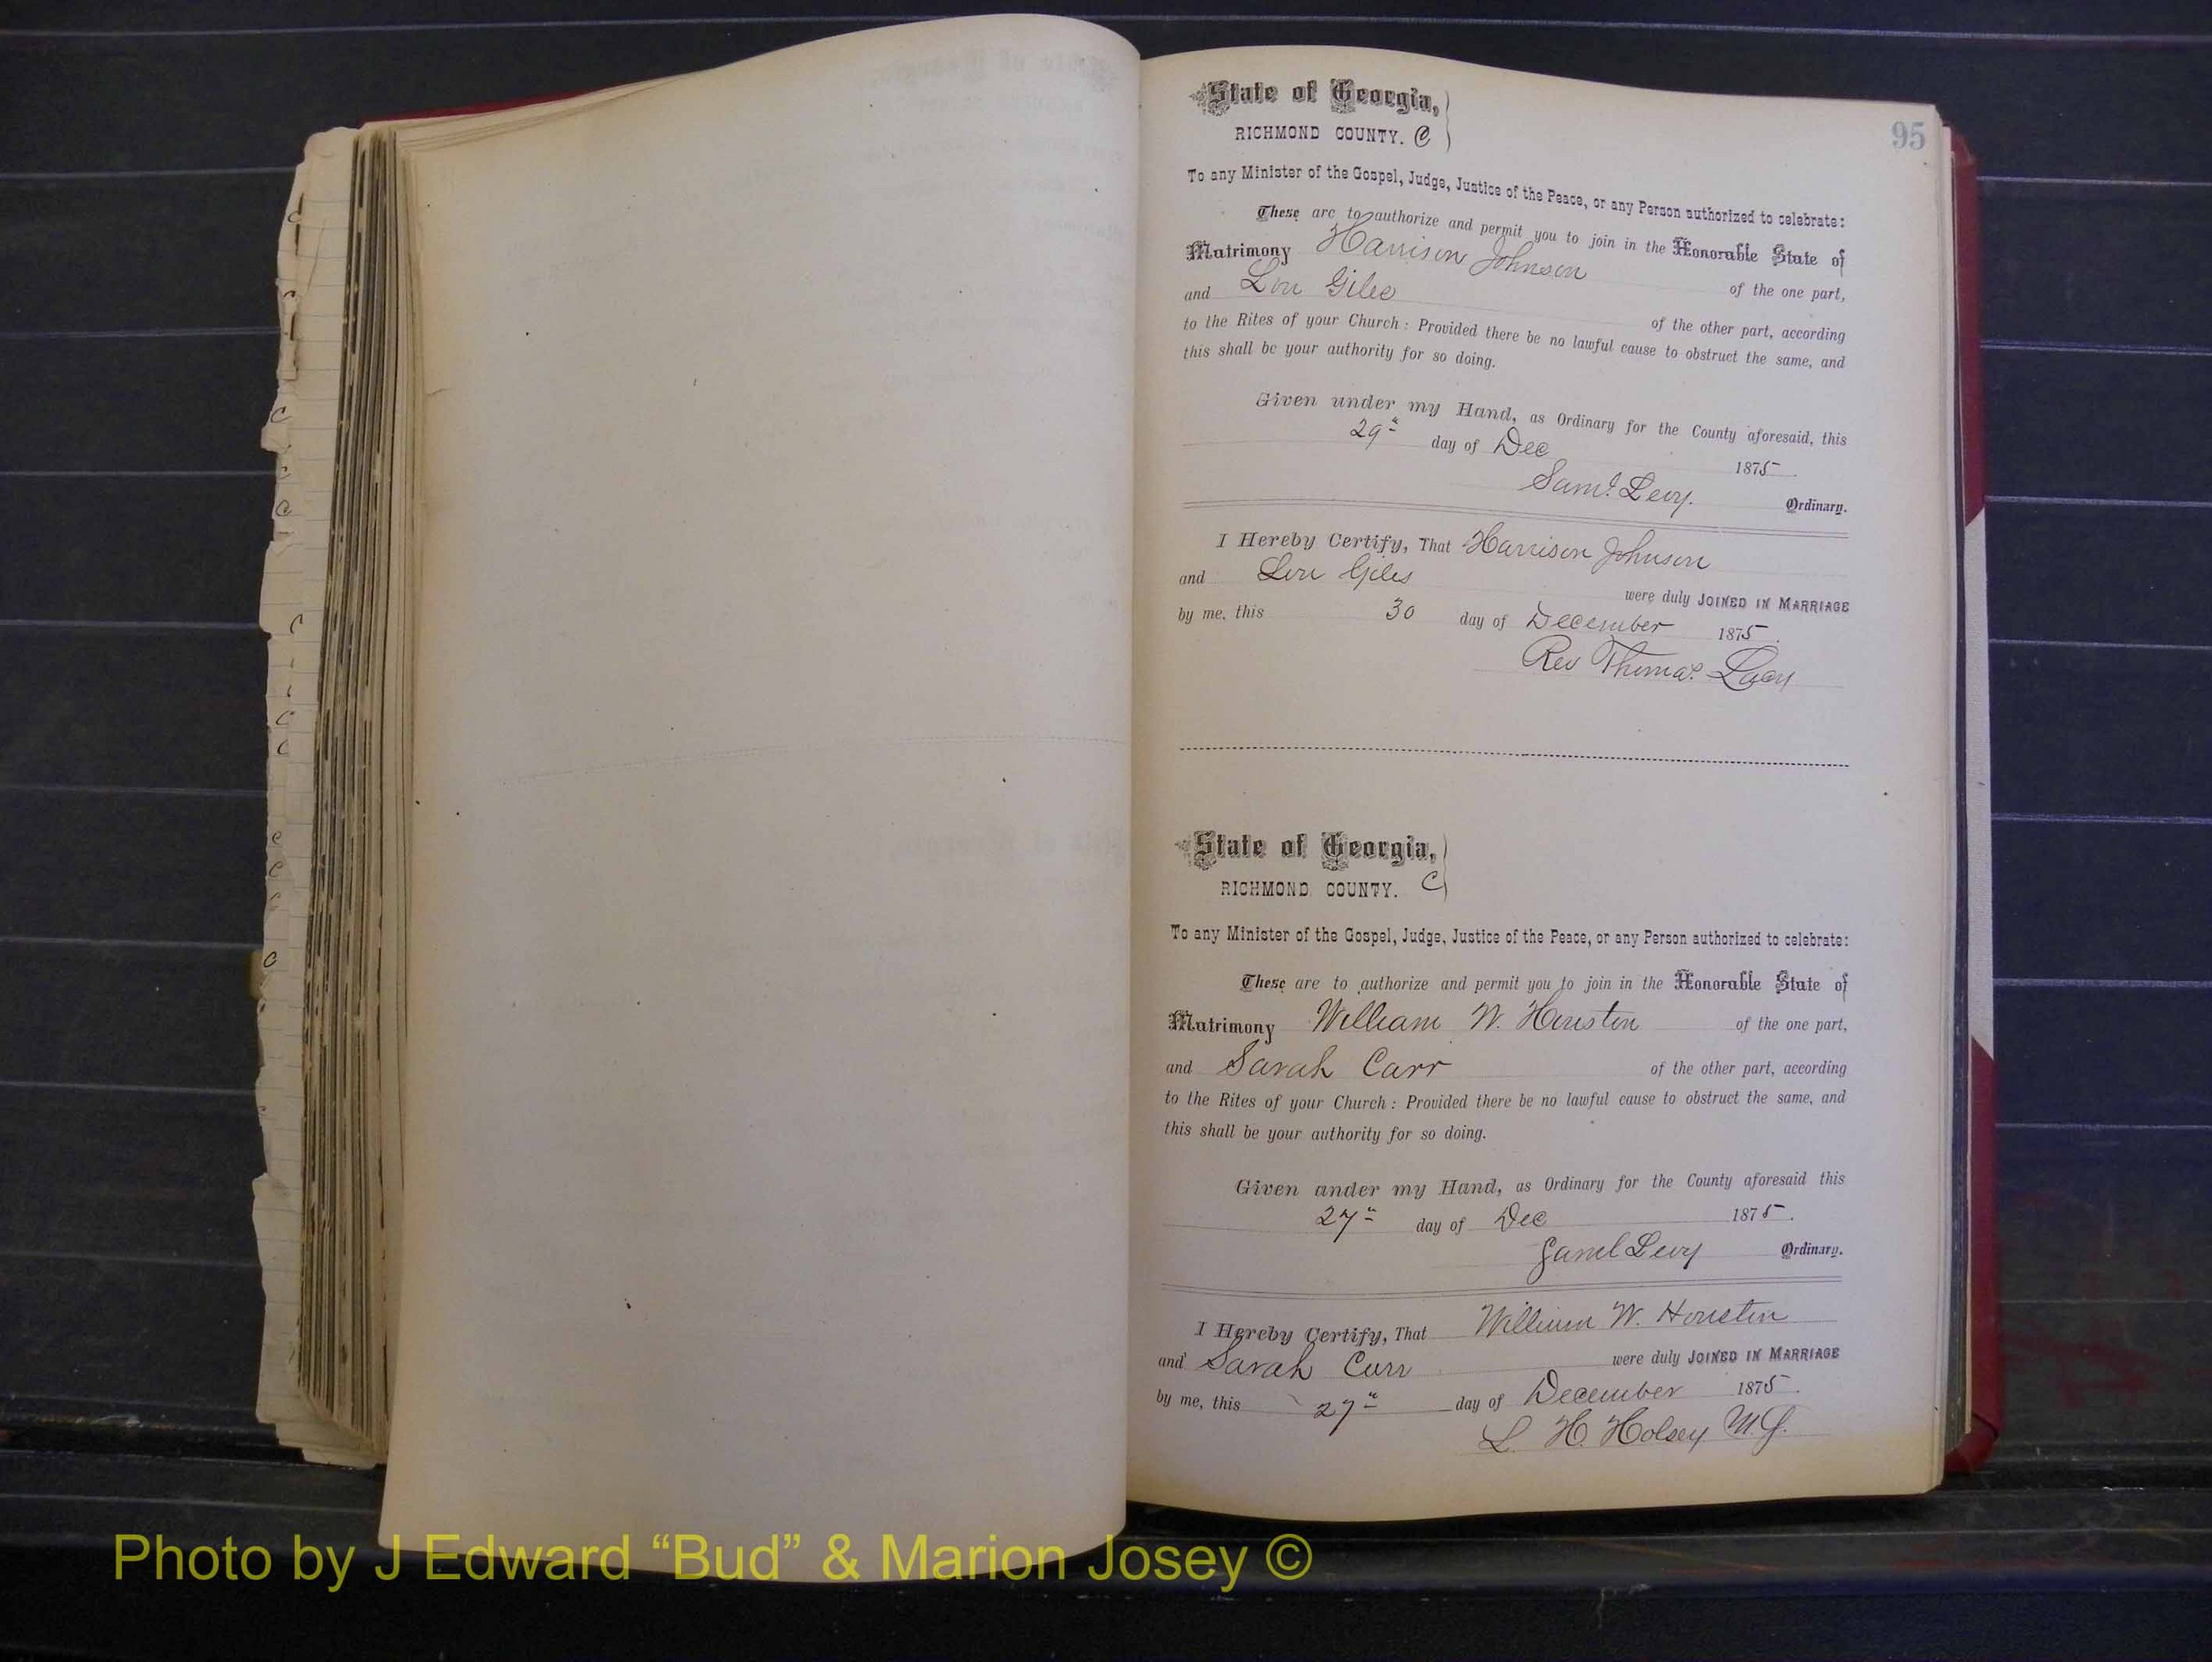 95
State of Georgia,
RICHMOND COUNTY. C
To any Minister of the Gospel, Judge, Justice of the Peace, or any Person authorized to celebrate:
These are to authorize and permit you to join in the Honorable State of
Matrimony Harrison Johnson of the one part,
and Lou Giles of the other part, according
to the Rites of your Church: Provided there be no lawful cause to obstruct the same, and
this shall be your authority for so doing.
Given under my Hand, as Ordinary for the County aforesaid, this
29" day of Dec 1875.
Saml. Levy. Ordinary.
I Hereby Certify, That Harrison Johnson
and Lou Giles were duly JOINED IN MARRIAGE
by me, this 30 day of December 1875.
Rev Thomas Lacy
State of Georgia,
RICHMOND COUNTY. C
To any Minister of the Gospel, Judge, Justice of the Peace, or any Person authorized to celebrate:
These are to authorize and permit you to join in the Honorable State of
Matrimony William W. Houston of the one part,
and Sarah Carr of the other part, according
to the Rites of your Church: Provided there be no lawful cause to obstruct the same, and
this shall be your authority for so doing.
Given under my Hand, as Ordinary for the County aforesaid this
27" day of Dec 1875.
Saml Levy Ordinary.
I Hereby Certify, That William W. Houston
and Sarah Carr were duly JOINED IN MARRIAGE
by me, this 27" day of December 1875.
L. H. Holsey M.G.
Photo by J Edward “Bud” & Marion Josey ©